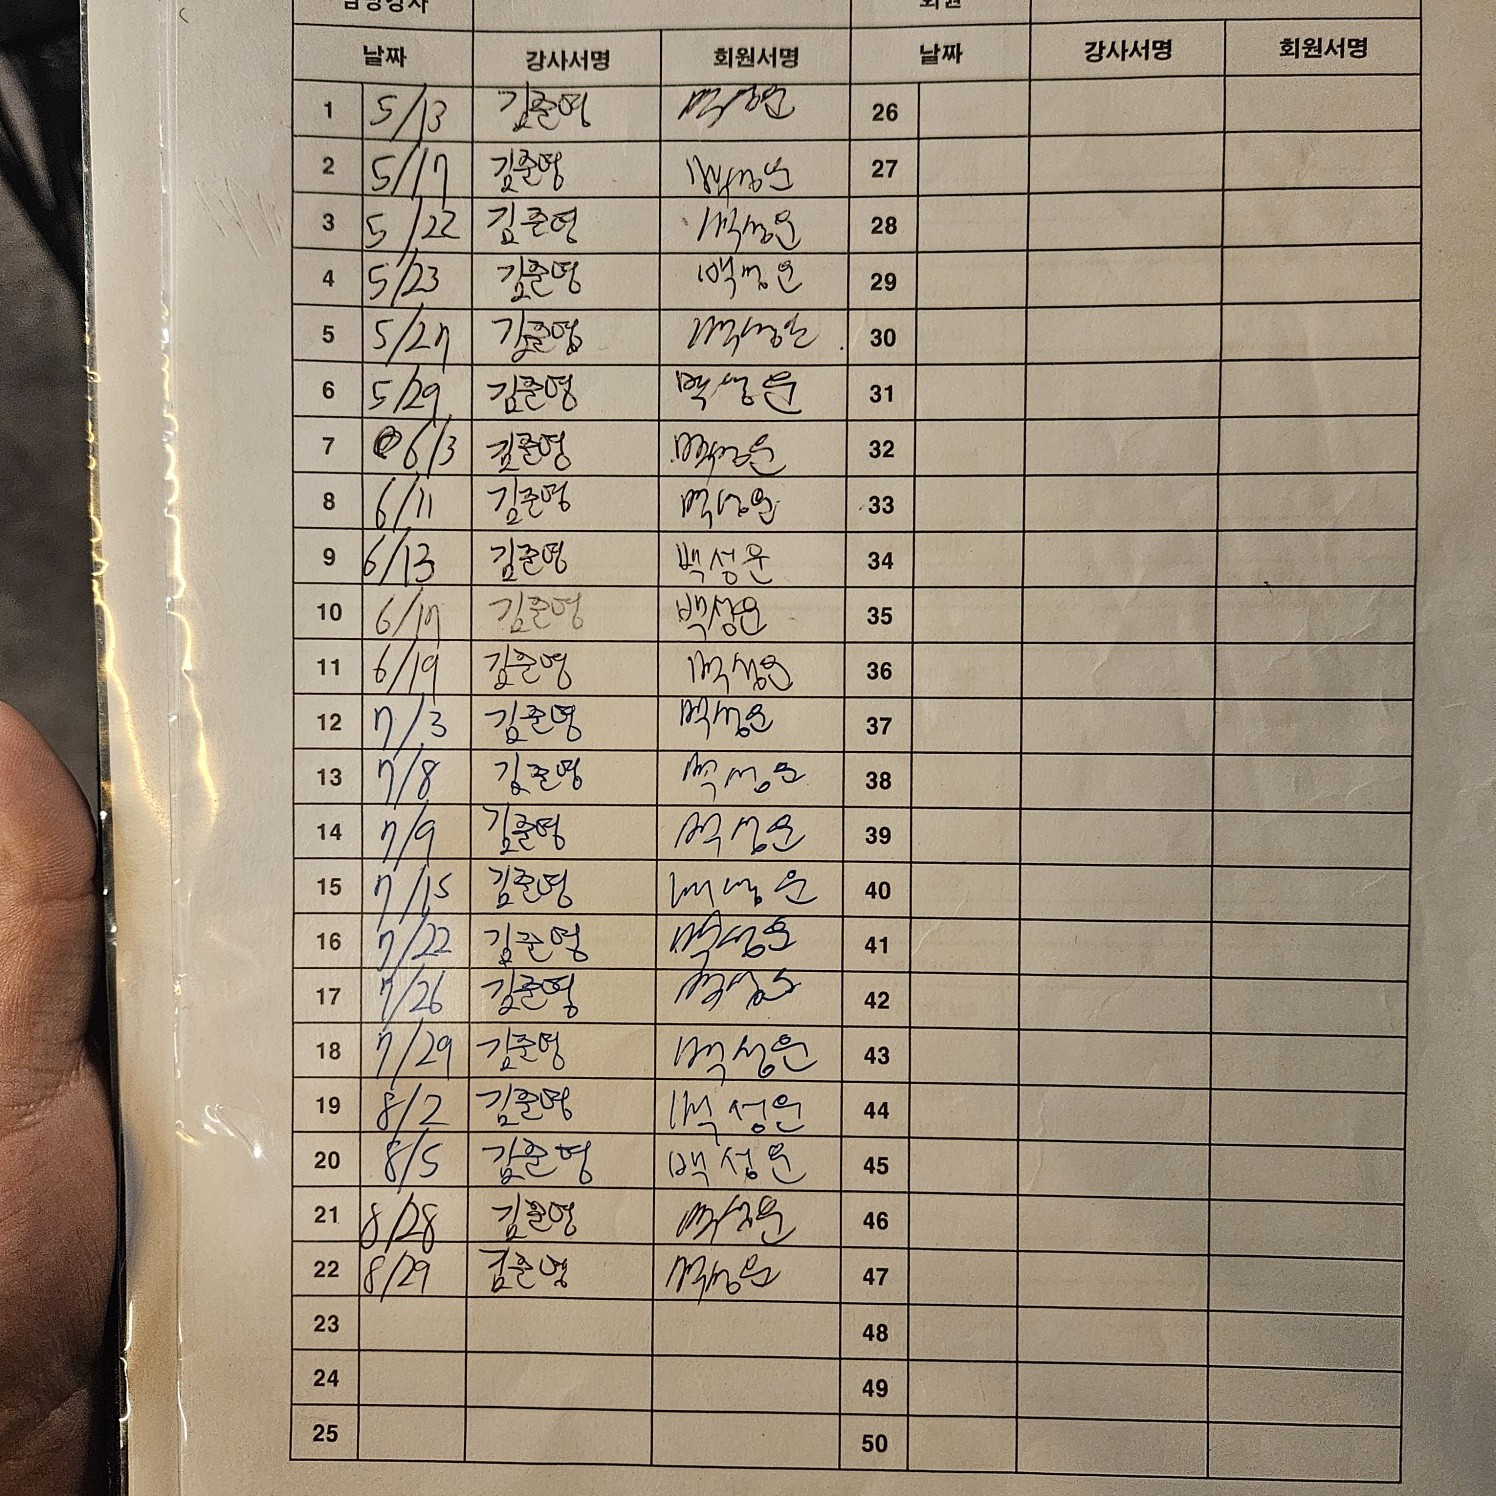 담당강사 회원
날짜 강사서명 회원서명 날짜 강사서명 회원서명
1 5/13 김준영 백성운 26
2 5/17 김준영 백성운 27
3 5/22 김준영 백성운 28
4 5/23 김준영 백성운 29
5 5/27 김준영 백성운 30
6 5/29 김준영 백성운 31
7 6/3 김준영 백성운 32
8 6/11 김준영 백성운 33
9 6/13 김준영 백성운 34
10 6/17 김준영 백성운 35
11 6/19 김준영 백성운 36
12 7/3 김준영 백성운 37
13 7/8 김준영 백성운 38
14 7/9 김준영 백성운 39
15 7/15 김준영 백성운 40
16 7/22 김준영 백성운 41
17 7/26 김준영 백성운 42
18 7/29 김준영 백성운 43
19 8/2 김준영 백성운 44
20 8/5 김준영 백성운 45
21 8/28 김준영 백성운 46
22 8/29 김준영 백성운 47
23 48
24 49
25 50